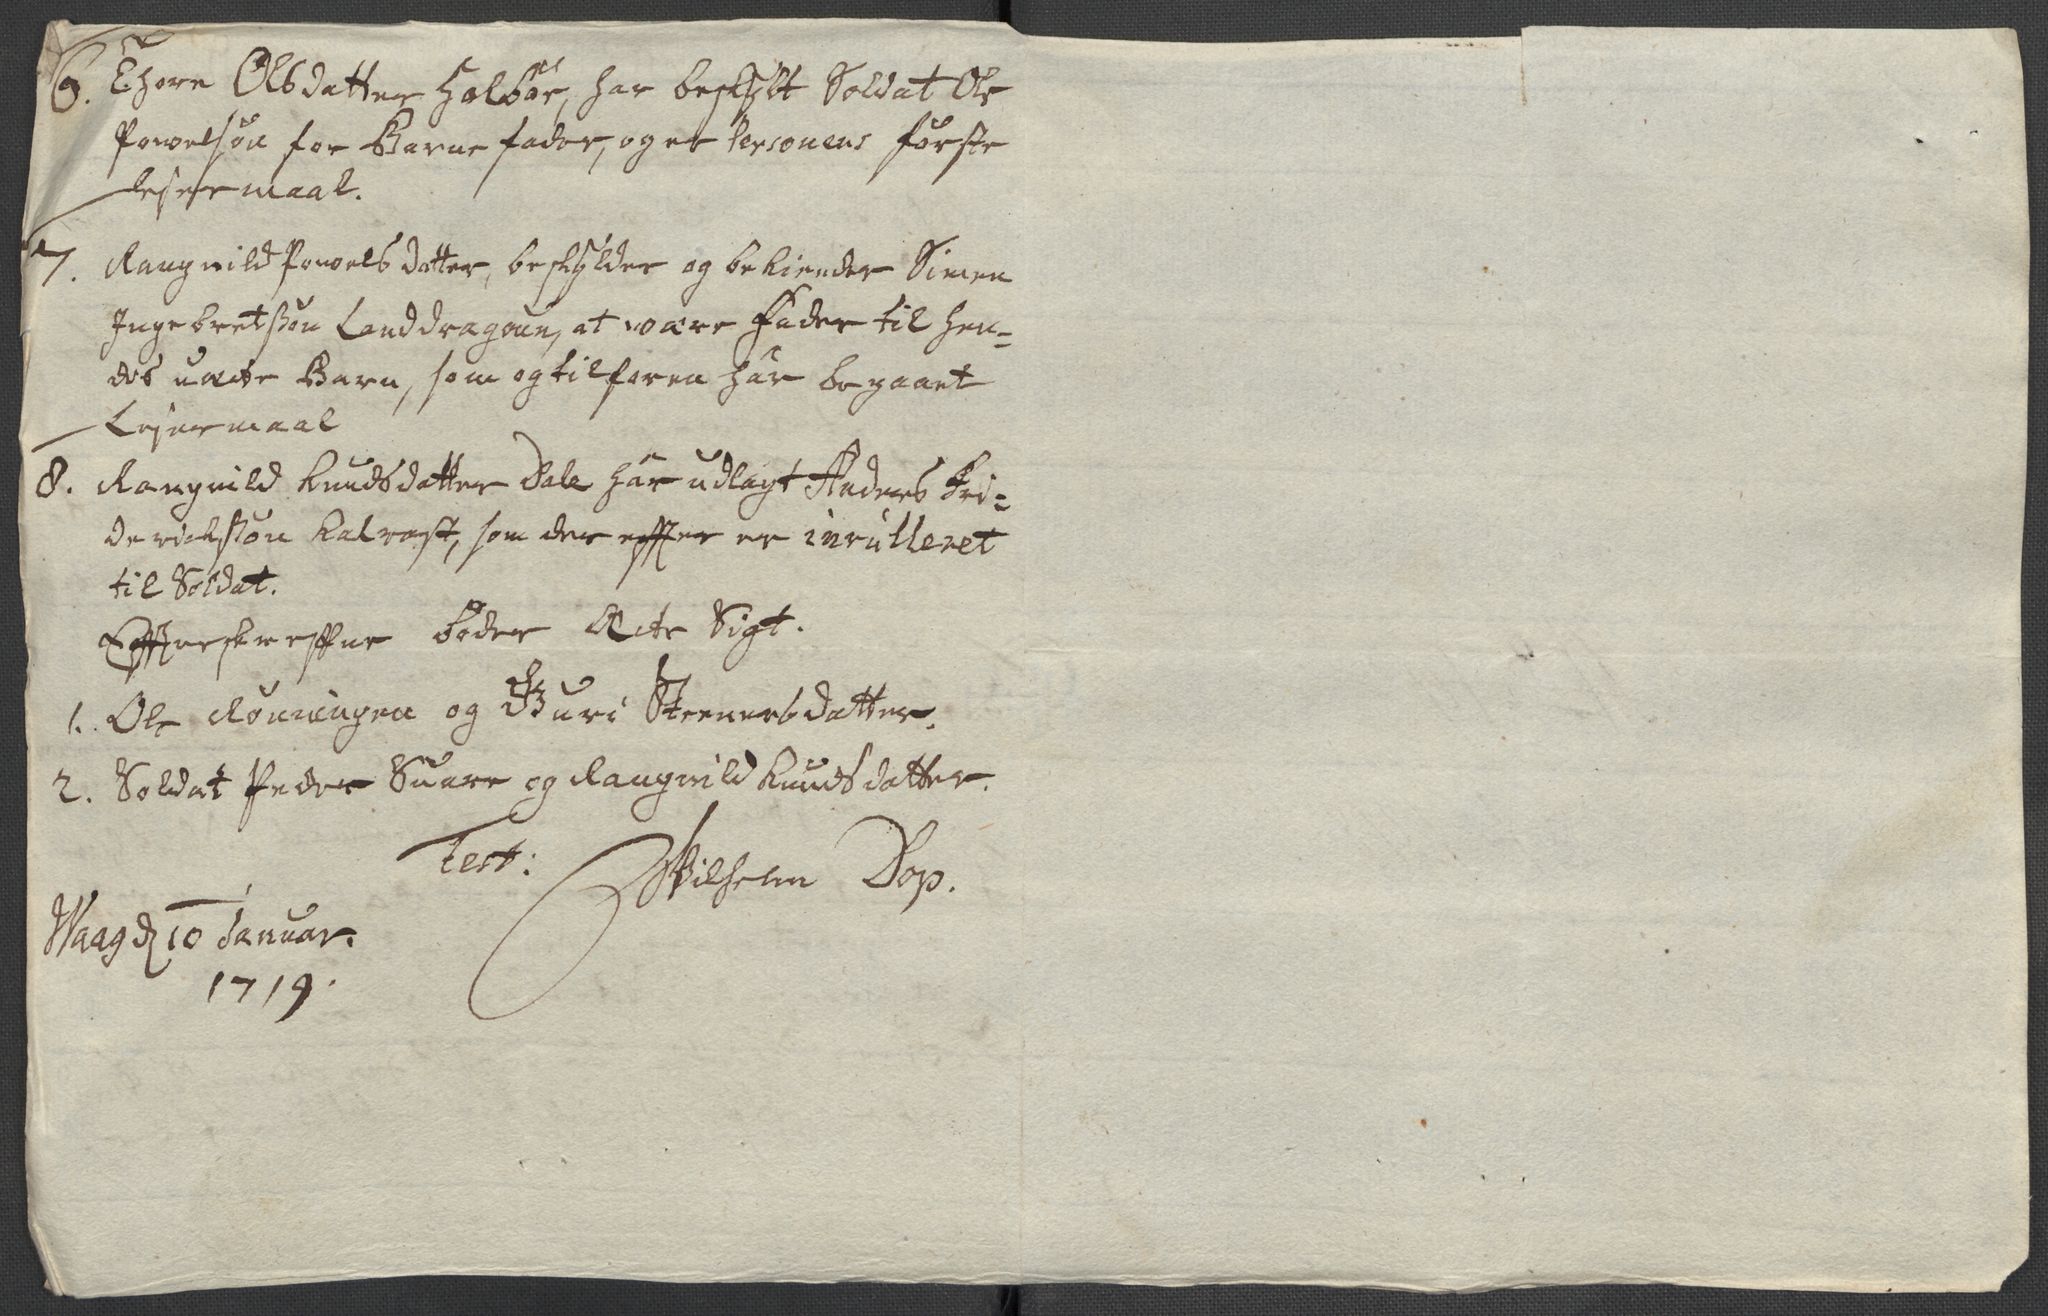 6. Thore Olsdatter Holbøe, har beskylt Soldat Ole
Powelsøn for Barne fader, og er Personens første
lejermaal.
7. Rangnild Powelsdatter, beskylder og bekiender Simen
Ingebretssøn Landdragoun, at være Fader til hen=
des uæcte Barn, som og tilforen har begaaet
Lejermaal
8. Rangnild Knudsdatter Dale har udlagt Anders Fri=
derichssøn Kalrast, som der effter er inrulleret
til Soldat.
Effterskreffne bøder Æcte Sigt.
1. Ole Rønningen og Guri Steenersdatter.
2. Soldat Peder Suare og Rangnild Knudsdatter.
Test: Wilhelm Dop.
Waag d 10 Januar.
1719.